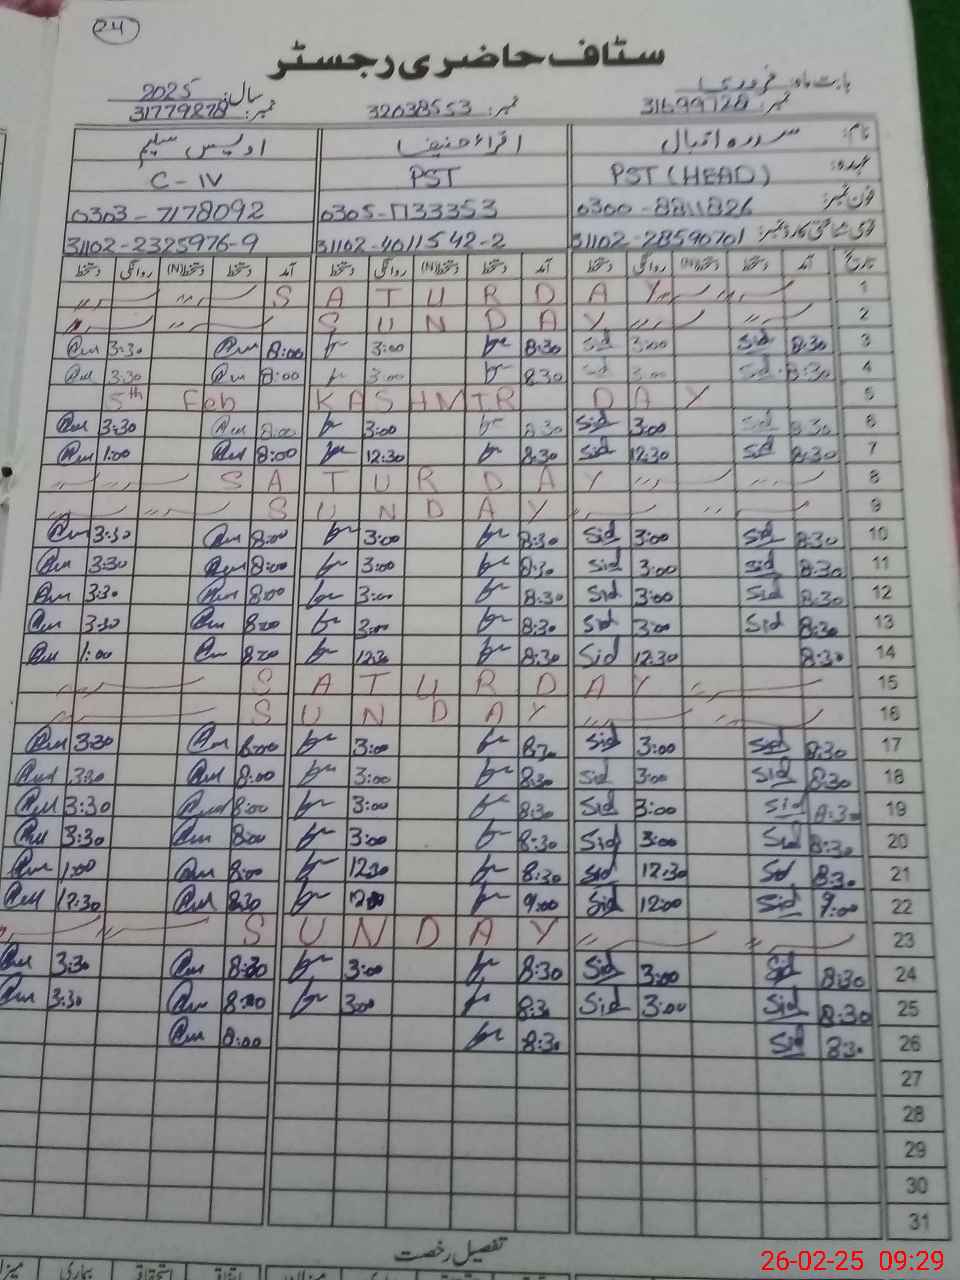 24
سٹاف حاضری رجسٹر
بابت ماہ: فروری سال: 2025
نمبر: 31699728 نمبر: 32038553 نمبر: 31779278
نام: سدرہ اقبال اقراء حنیف اویس سلیم
عہدہ: PST (HEAD) PST C-IV
فون نمبر: 0300-8811826 0305-1733353 0303-7178092
قومی شناختی کارڈ نمبر: 31102-28590701 31102-4011542-2 31102-2325976-9
تاریخ آمد دستخط دستخط(N) روانگی دستخط آمد دستخط دستخط(N) روانگی دستخط آمد دستخط دستخط(N) روانگی دستخط
1 SATURDAY
2 SUNDAY
3 8:30 Sid 3:00 Sid 8:30 3:00 8:00 3:30
4 8:30 Sid 3:00 Sid 8:30 3:00 8:00 3:30
5 5th Feb KASHMIR DAY
6 8:30 Sid 3:00 Sid 8:30 3:00 8:00 3:30
7 8:30 Sid 12:30 Sid 8:30 12:30 8:00 1:00
8 SATURDAY
9 SUNDAY
10 8:30 Sid 3:00 Sid 8:30 3:00 8:00 3:30
11 8:30 Sid 3:00 Sid 8:30 3:00 8:00 3:30
12 8:30 Sid 3:00 Sid 8:30 3:00 8:00 3:30
13 8:30 Sid 3:00 Sid 8:30 3:00 8:00 3:30
14 8:30 12:30 Sid 8:30 12:30 8:00 1:00
15 SATURDAY
16 SUNDAY
17 8:30 Sid 3:00 Sid 8:30 3:00 8:00 3:30
18 8:30 Sid 3:00 Sid 8:30 3:00 8:00 3:30
19 8:30 Sid 3:00 Sid 8:30 3:00 8:00 3:30
20 8:30 Sid 3:00 Sid 8:30 3:00 8:00 3:30
21 8:30 Sid 12:30 Sid 8:30 12:30 8:00 1:00
22 9:00 Sid 12:00 Sid 9:00 8:30 12:30
23 SUNDAY
24 8:30 Sid 3:00 Sid 8:30 3:00 3:30
25 8:30 Sid 3:00 Sid 8:30 3:00 8:00 3:30
26 8:30 Sid 8:30 8:00
27
28
29
30
31
تفصیل رخصت
26-02-25 09:29